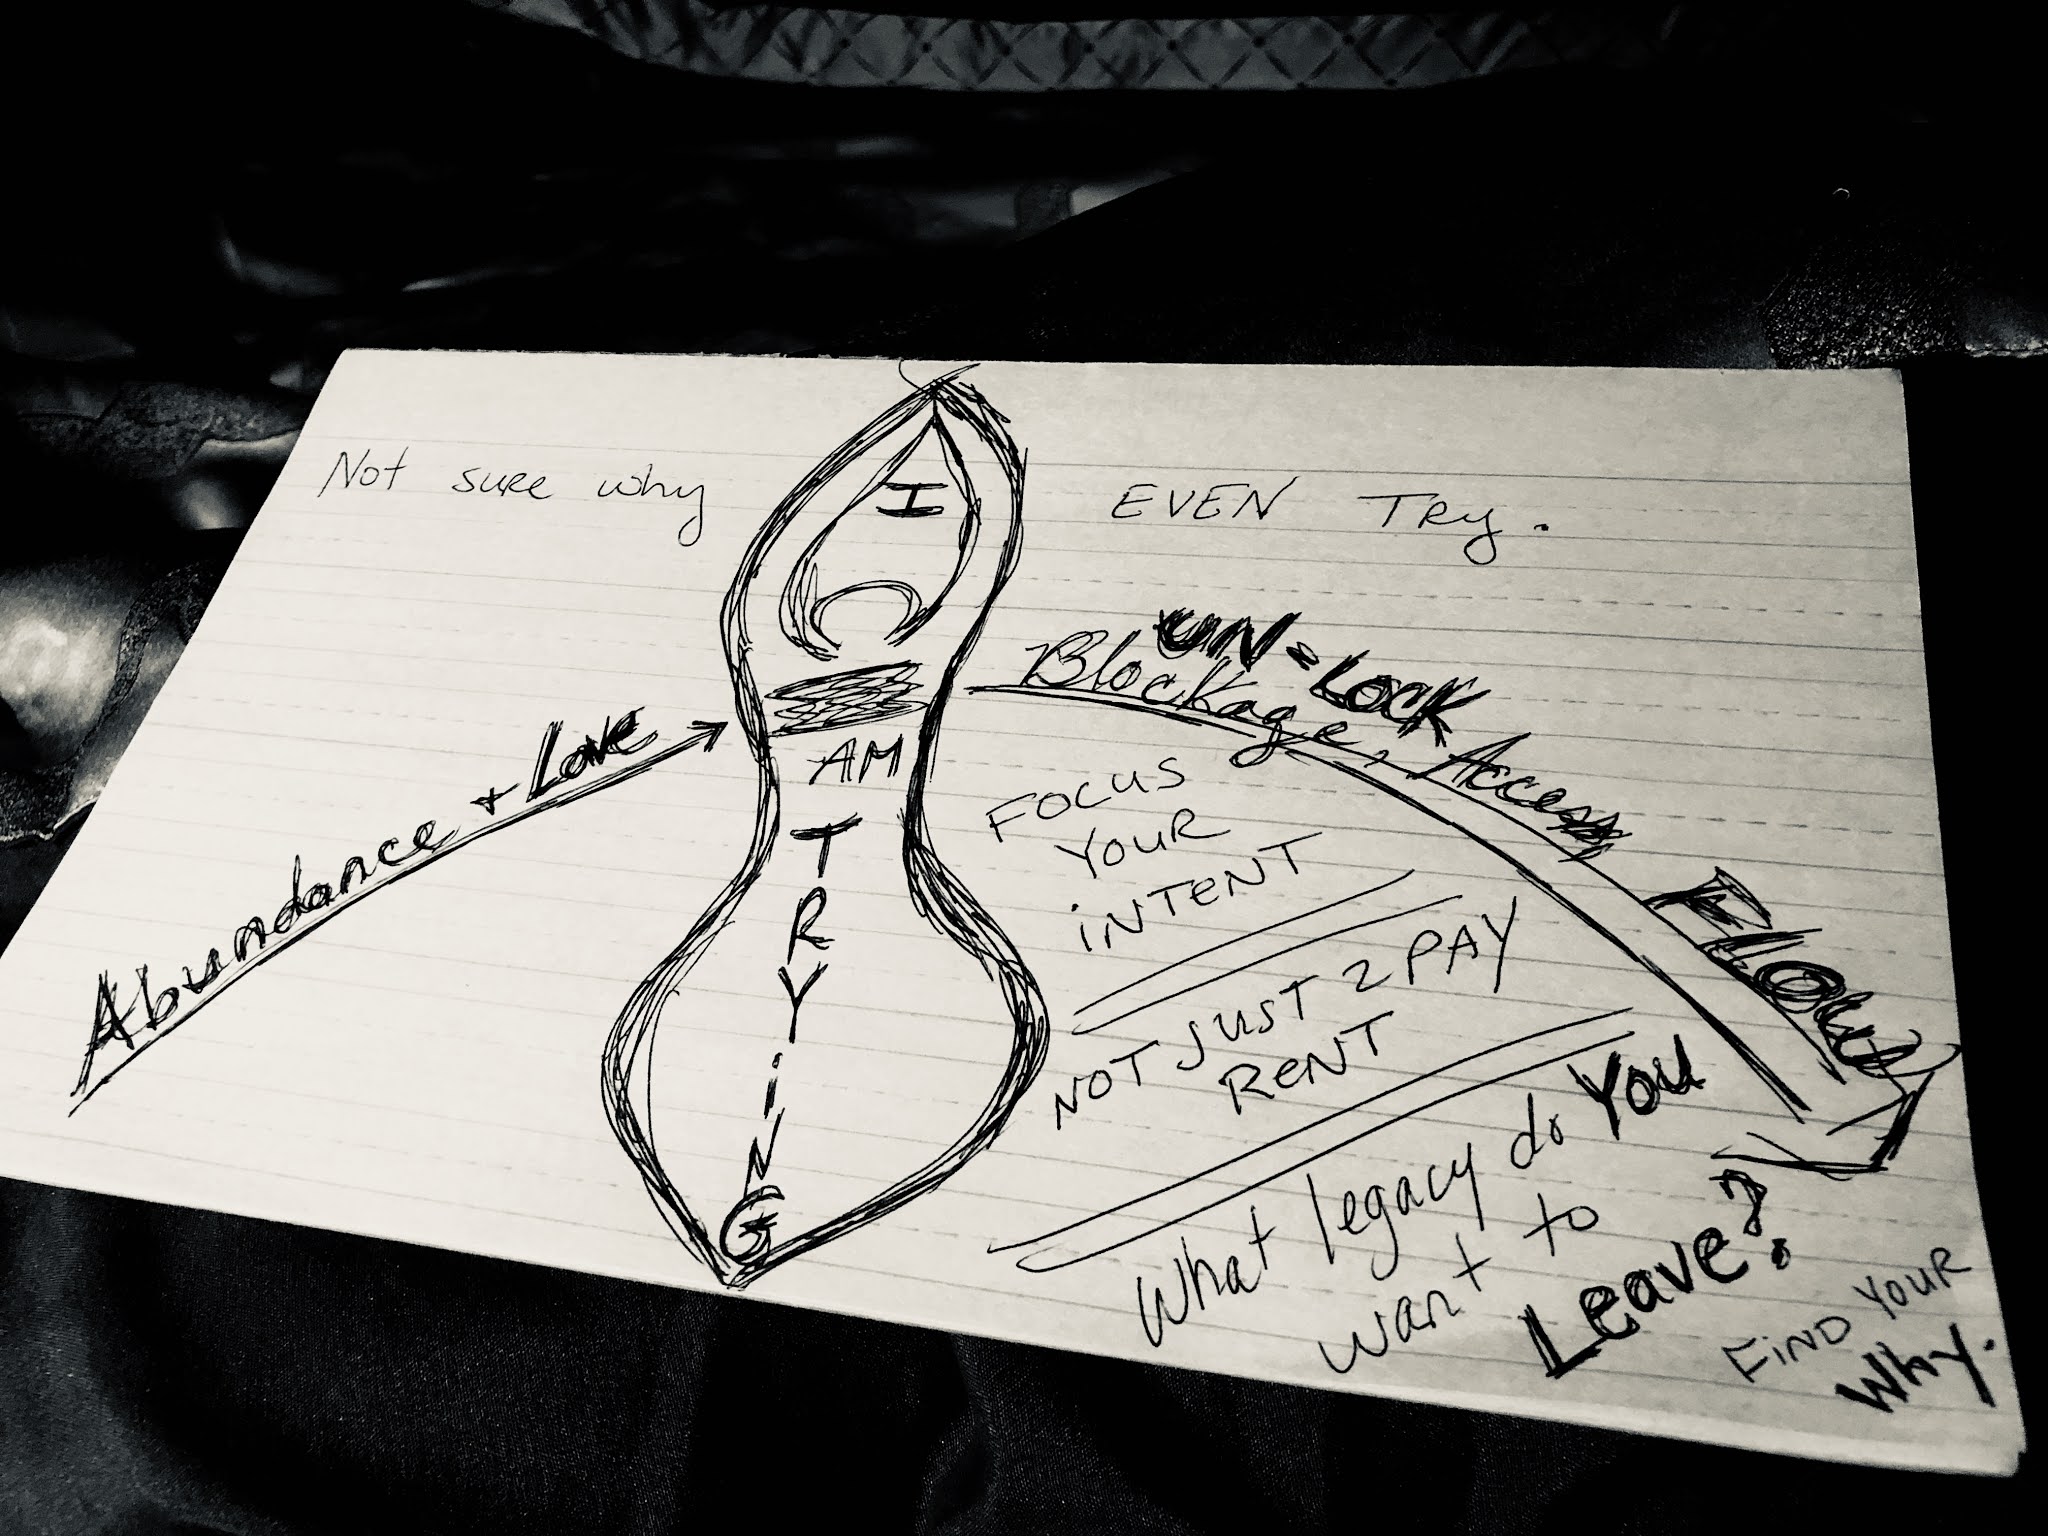 Not sure why I EVEN TRY.
Abundance + Love
AM
TRYiNG
UN-LOCK
Blockage, Access Flow
FOCUS
YOUR
iNTENT
NOT JUST 2 PAY
RENT
What legacy do You
want to
Leave?
FiND YOUR
Why.